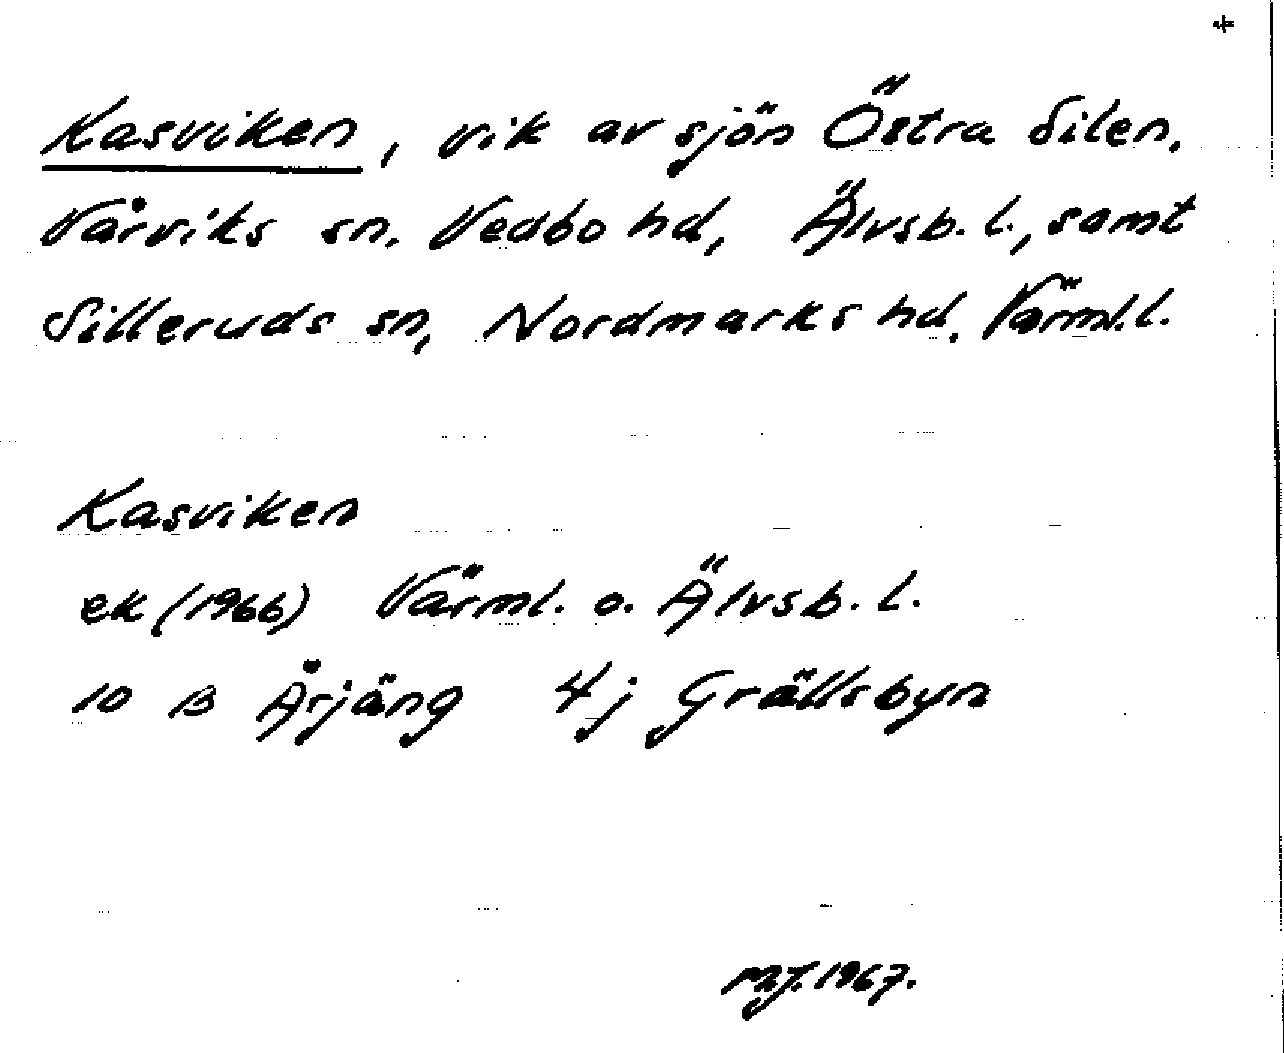 Kasviken, vik av sjön Östra Silen.
Vårviks sn. Vedbo hd, Älvsb. l., samt
Silleruds sn, Nordmarks hd. Värml. l.
Kasviken
ek (1966) Värml. o. Älvsb. l.
10 B Årjäng 4j Grällsbyn
MJ. 1967.